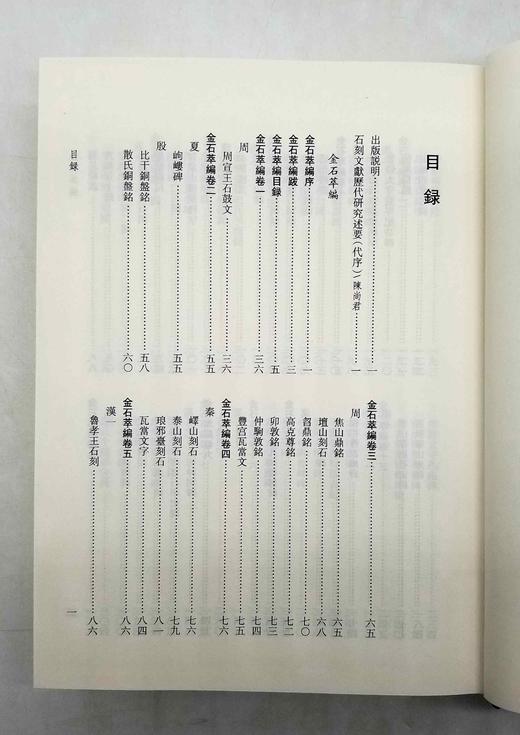 目録
出版説明……一
石刻文獻歷代研究述要(代序)/陳尚君……一
金石萃編
金石萃編序……一
金石萃編跋……三
金石萃編目録……五
金石萃編卷一……三六
周
周宣王石鼓文……三六
金石萃編卷二……五五
夏
岣嶁碑……五五
殷
比干銅盤銘……五八
散氏銅盤銘……六〇
金石萃編卷三……六五
周
焦山鼎銘……六五
壇山刻石……六八
㫚鼎銘……七〇
高克尊銘……七二
卯敦銘……七三
仲駒敦銘……七四
豐宮瓦當文……七五
金石萃編卷四……七六
秦
嶧山刻石……七六
泰山刻石……七九
琅邪臺刻石……八一
瓦當文字……八四
金石萃編卷五……八六
漢一
魯孝王石刻……八六
目録
一